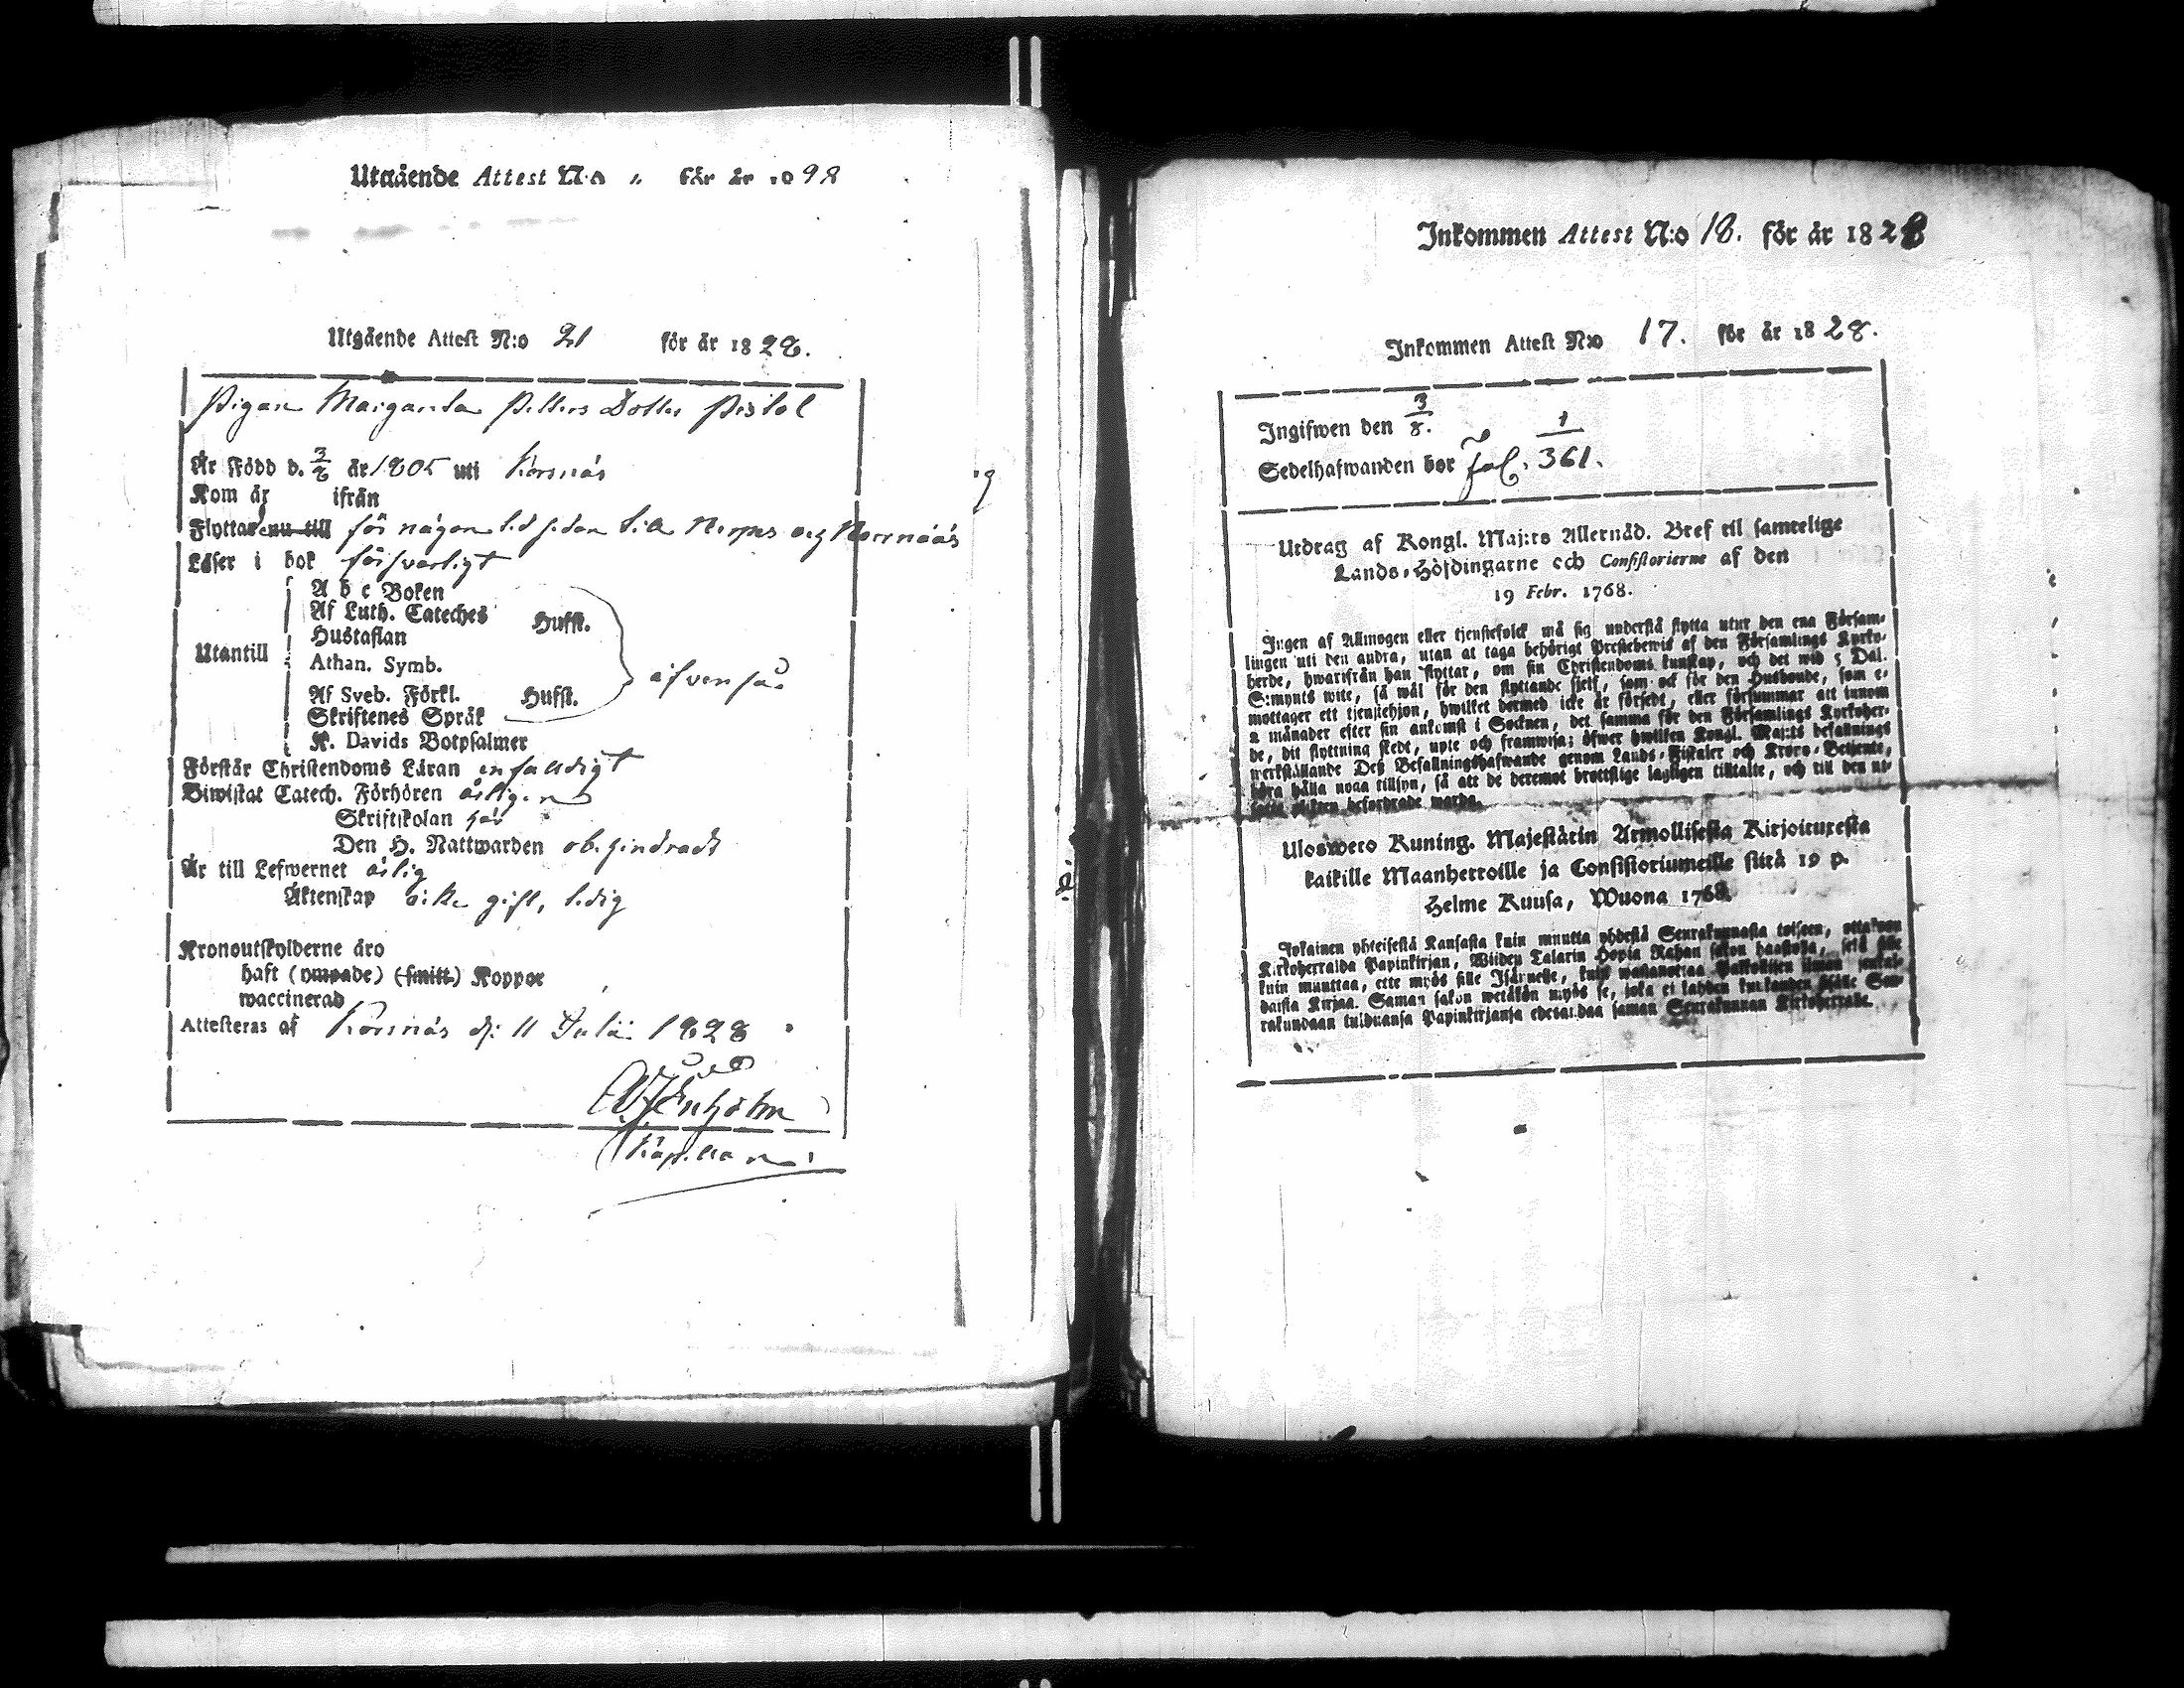 Utgående Attest N:o för år 98
Utgående Attest N:o 21 för år 1828.
Pigan Margareta Petters Dotter Pistol
Är Född d. 3/8 år 1805 uti Korsnäs
Kom år ifrån
Flyttade nu till för någon tid sedan till Nerpes och Norrnääs
Läser i bok försvarligt
A b c Boken
Af Luth. Cateches Husft.
Hustaflan
Utantill
Athan. Symb.
äfven så.
Af Sveb. Förkl. Husft.
Skriftenes Språk
K. Davids Botpsalmer
Förstår Christendoms Läran enfaldigt
Biwistat Catech. Förhören årligen
Skriftskolan här
Den H. Nattwarden obehindradt
Är till Lefwernet ärlig
Äktenskap icke gift, ledig
Kronoutskylderne äro
haft (ympade) (smitt.) Koppor
waccinerad
Attesteras af Korsnäs d: 11 Julii 1828
Kapellan.
Inkommen Attest N:o 18. för år 1828
Inkommen Attest N:o 17. för år 1828.
Ingifwen den 3/8.
Sedelhafwanden bor Fol. 1/361.
Utdrag af Kongl. Maj:ts Allernåd. Bref til samtelige
Lands-Höfdingarne och Consistorierne af den
19 Febr. 1768.
Ingen af Allmogen eller tjenstefolck må sig understå flytta utur den ena Försam-
lingen uti den andra, utan at taga behörigt Prestebewis af den Församlings Kyrko-
herde, hwarifrån han flyttar, om sin Christendoms kunskap, och det wid 5 Dal.
S:mynts wite, så wäl för den flyttande sjelf, som ock för den Husbonde, som e-
mottager ett tjenstehjon, hwilket dermed icke är försedt, eller försummar att innom
2 månader efter sin ankomst i Socknen, det samma för den Församlings Kyrkoher-
de, dit flyttning skedt, upte och framwisa; öfwer hwilken Kongl. Maj:ts befallnings
werkställande Deß Befallningshafwande genom Lands-Fiskaler och Krono-Betjente,
böra hålla noga tillsyn, så att de deremot brottslige lagligen tilltalte, och till den ut-
satte plikten befordrade warda.
Uloswero Kuning. Majestätin Armollisesta Kirjoituxesta
kaikille Maanherroille ja Consistoriumeille siitä 19 p.
Helme Kuusa, Wuona 1768.
Jokainen yhteisestä Kansasta kuin muutta yhdestä Seurakunnasta toiseen, ottakoon
Kirkoherralda Papinkirjan, Wiiden Talarin Hopia Rahan sakon haastolla, sekä sille
kuin muuttaa, ette myös sille Isännelle, kuin wastanottaa Palkollisen ilman senkal-
daista Kirjaa. Saman sakon wetäkön myös se, joka ei kahden kuukauden sisälle Seu-
rakundaan tulduansa Papinkirjansa edesandaa saman Seurakunnan Kirkoherralle.